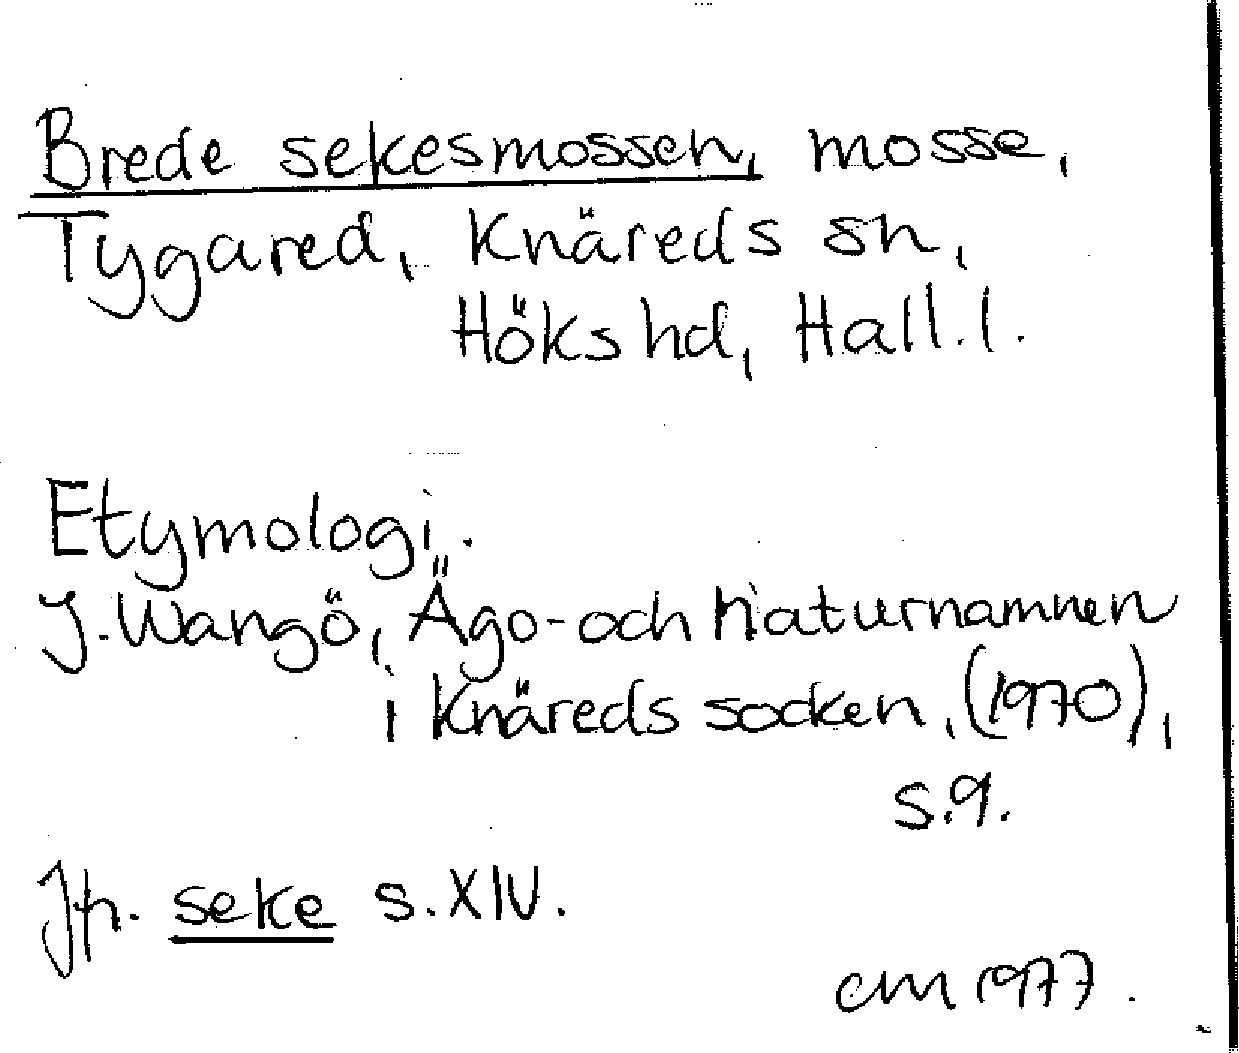 Brede sekesmossen, mosse,
Tygared, Knäreds sn,
Höks hd, Hall. l.
Etymologi.
J. Wangö, Ägo- och naturnamnen
i Knäreds socken, (1970),
s. 9.
Jfr. seke s. XIV.
cm 1977.